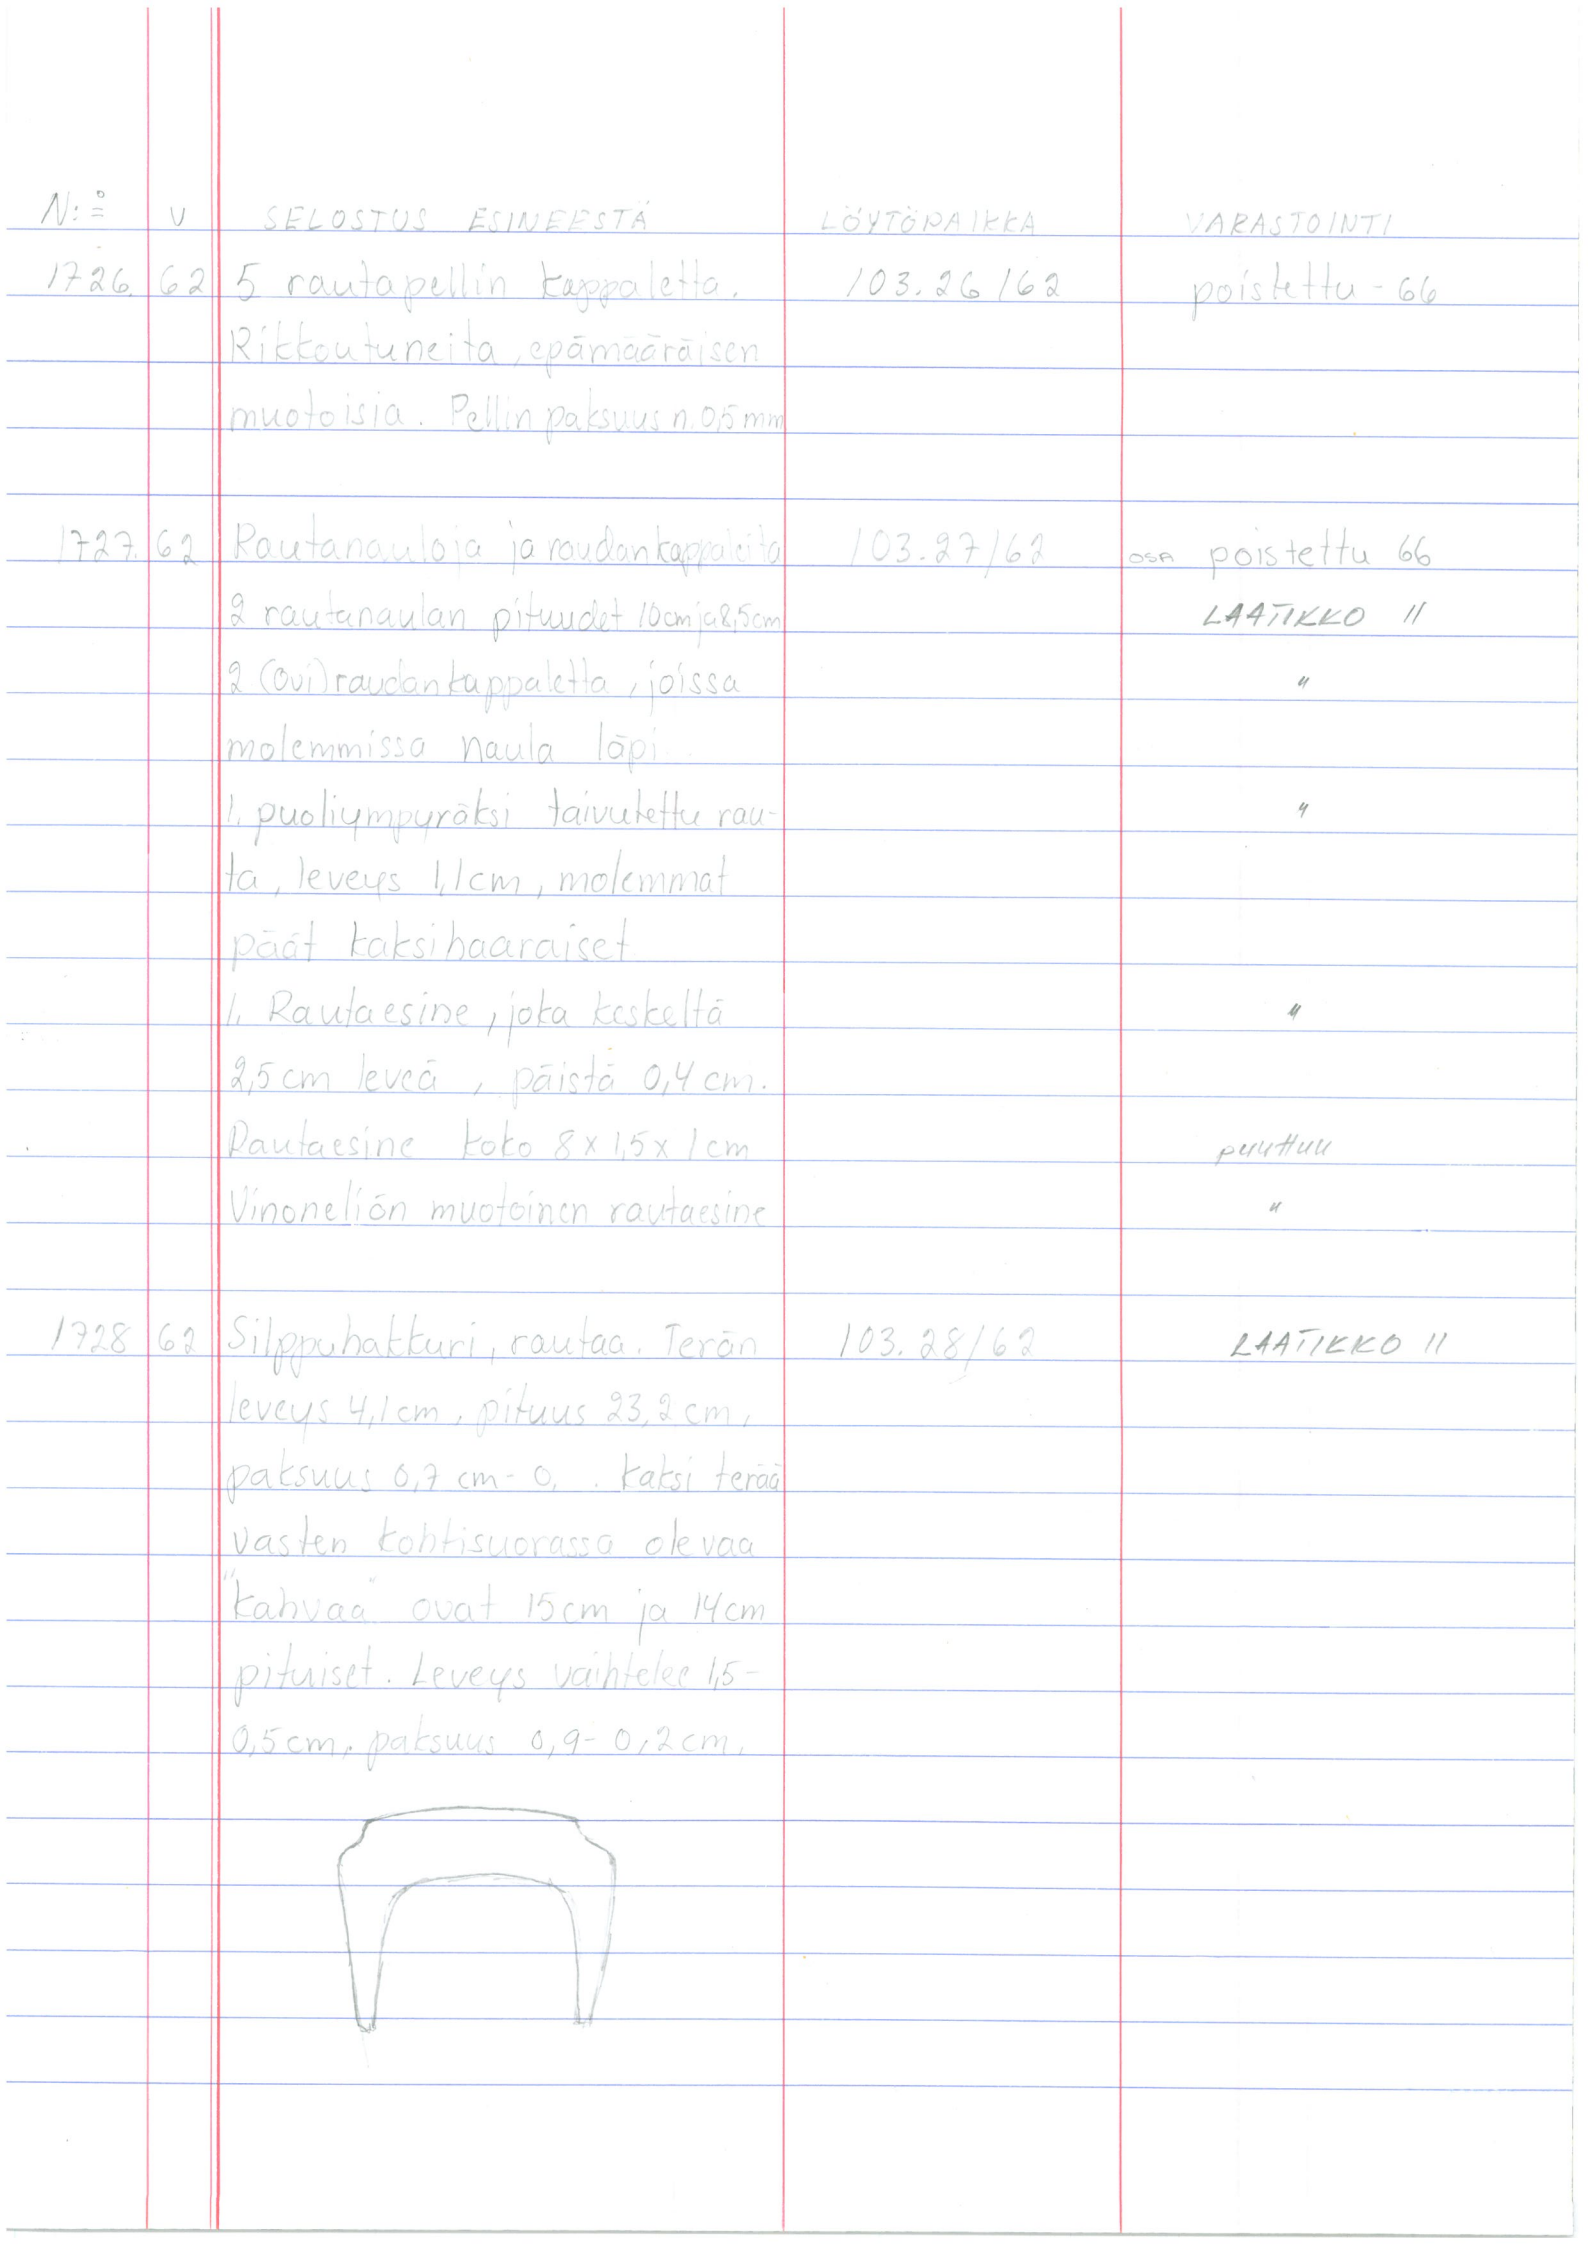 N:o V SELOSTUS ESINEESTÄ LÖYTÖPAIKKA VARASTOINTI
1726. 62 5 rautapellin kappaletta. 103.26/62 poistettu - 66
Rikkoutuneita, epämääräisen
muotoisia. Pellin paksuus n. 0,5 mm
1727. 62 Rautanauloja ja raudankappaleita 103.27/62 OSA poistettu 66
2 rautanaulan pituudet 10cm ja 8,5cm LAATIKKO 11
2 (ovi)raudankappaletta, joissa "
molemmissa naula läpi
1. puoliympyräksi taivutettu rau- "
ta, leveys 1,1cm, molemmat
päät kaksihaaraiset
1. Rautaesine, joka keskeltä "
2,5cm leveä, päistä 0,4 cm.
Rautaesine koko 8 x 1,5 x 1 cm puuttuu
Vinoneliön muotoinen rautaesine "
1728 62 Silppuhakkuri, rautaa. Terän 103.28/62 LAATIKKO 11
leveys 4,1cm, pituus 23,2 cm,
paksuus 0,7 cm - 0, . Kaksi terää
vasten kohtisuorassa olevaa
"kahvaa" ovat 15cm ja 14cm
pituiset. Leveys vaihtelee 1,5-
0,5cm, paksuus 0,9- 0,2cm.